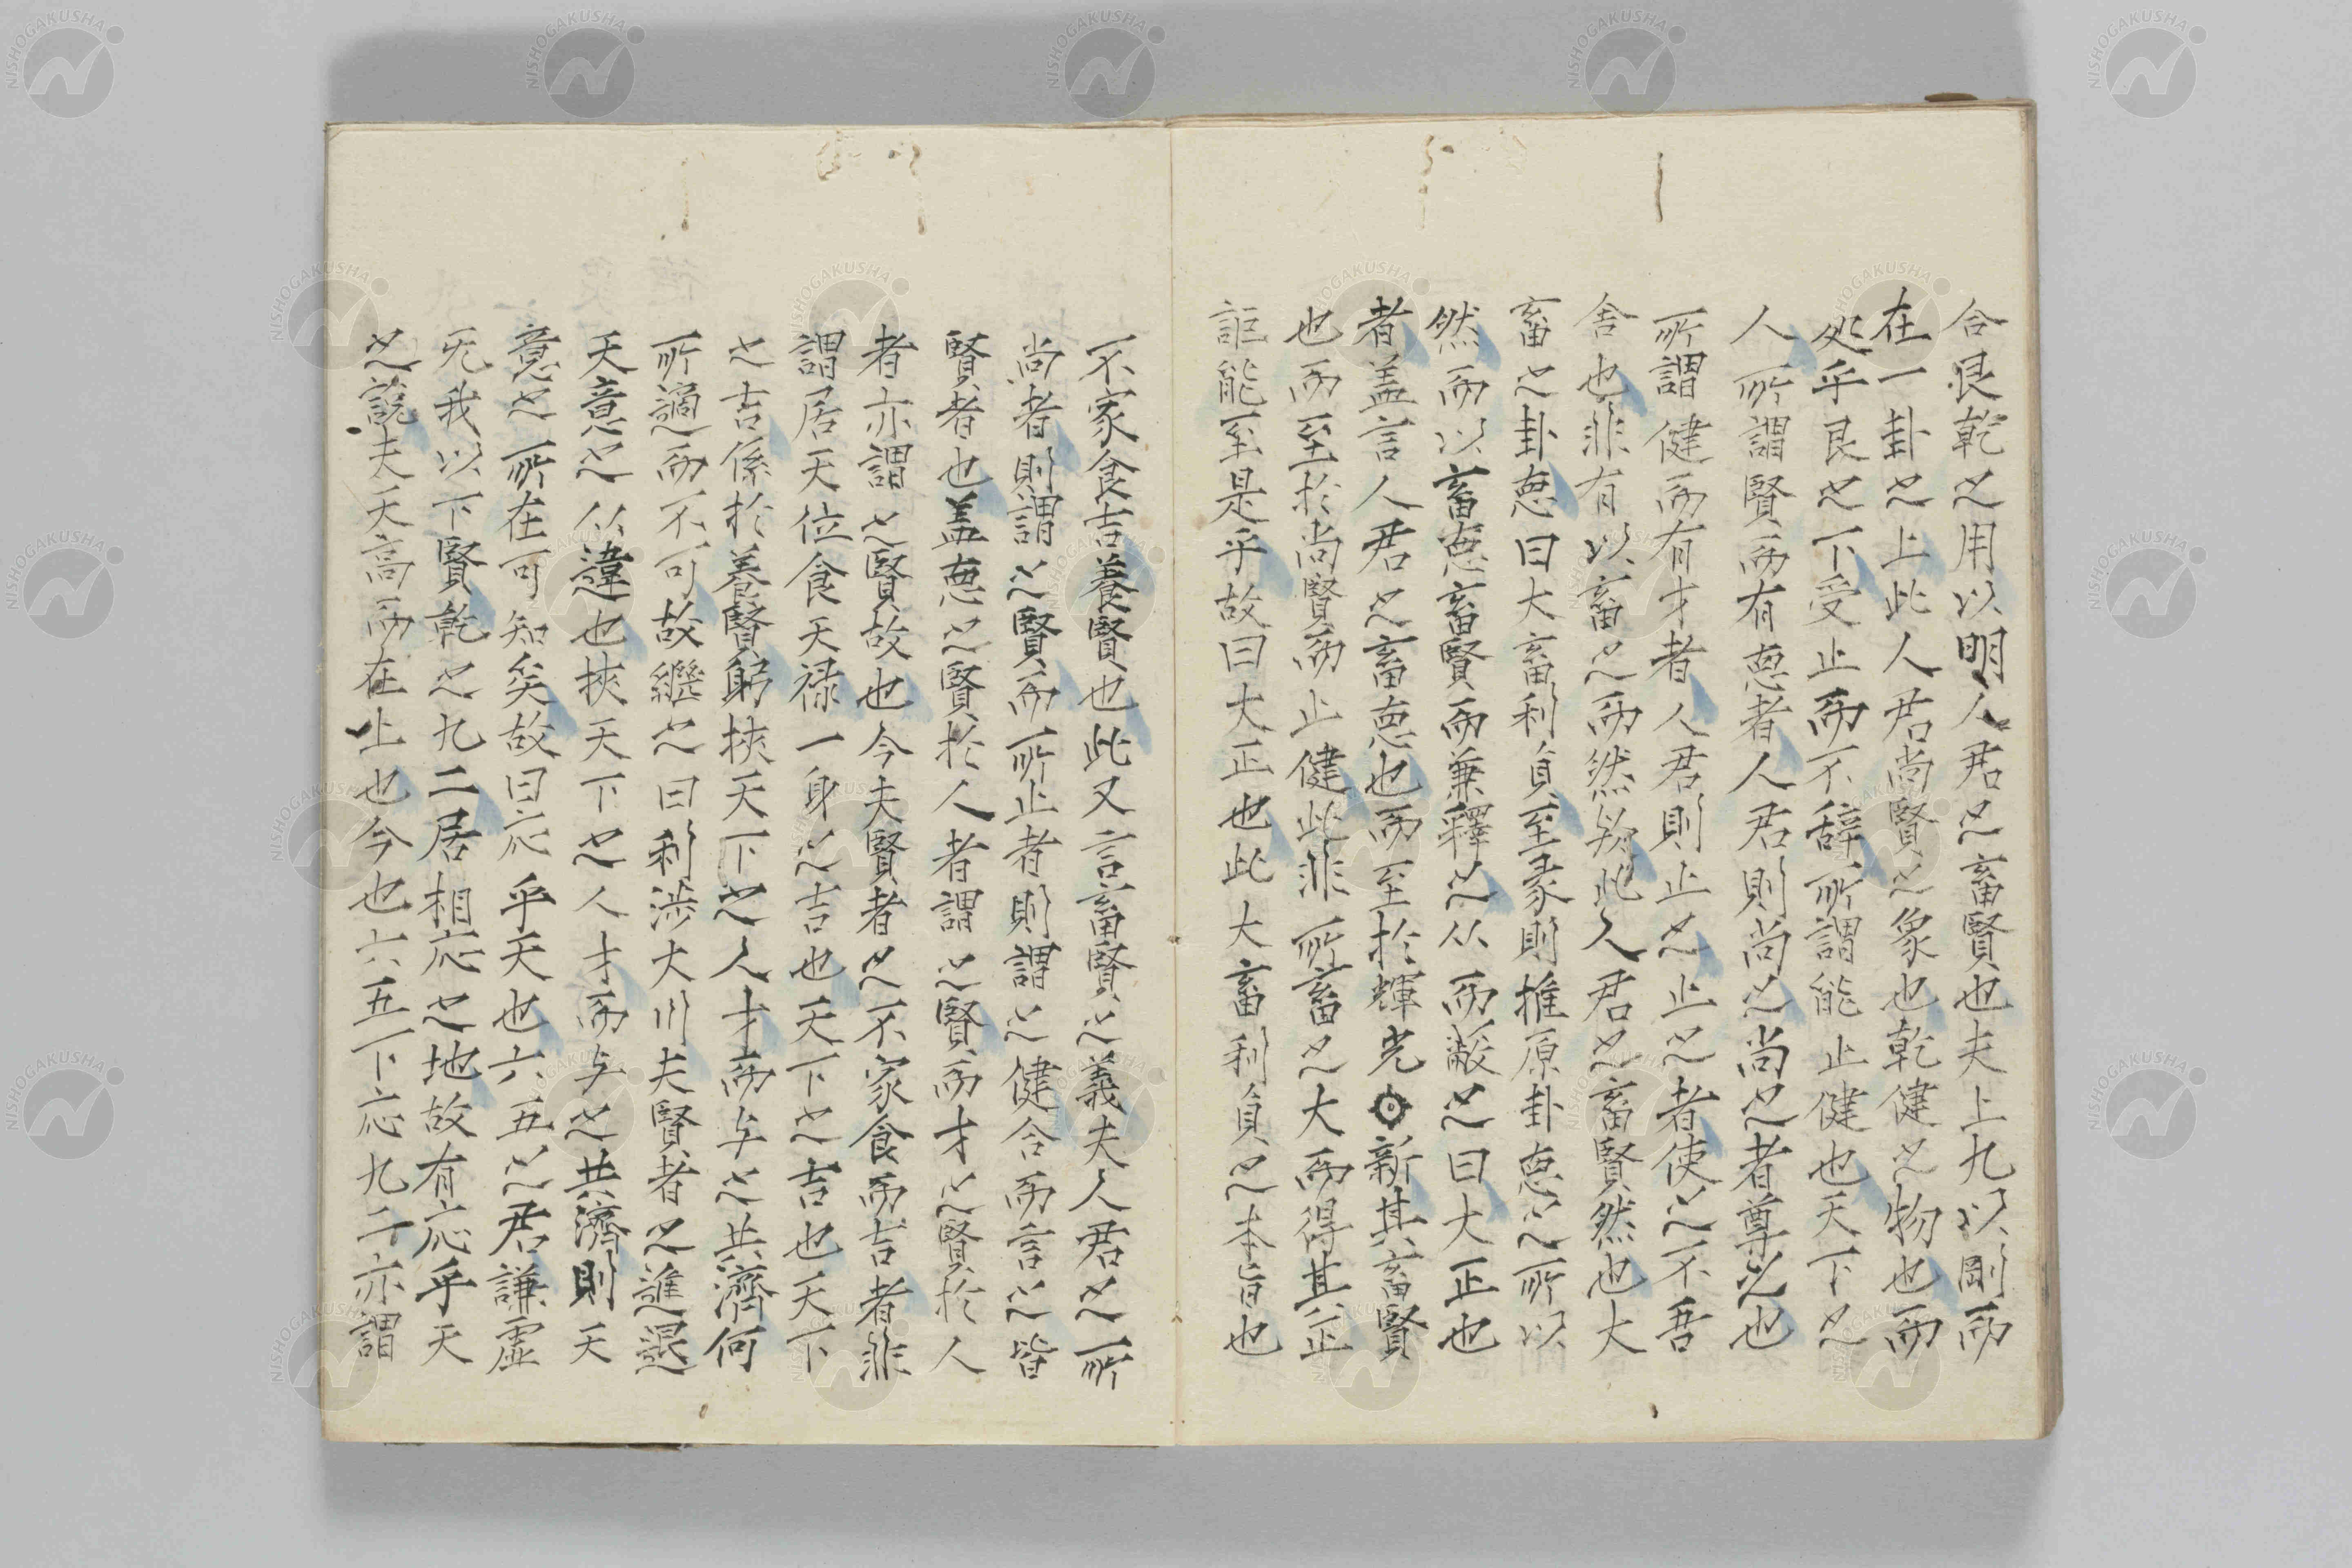 合艮乾之用以明人君之畜賢也夫上九以剛而
在一卦之上此人君尚賢之象也乾健之物也而
処乎艮之下受止而不辞所謂能止健也天下之
人所謂賢而有恵者人君則尚之尚之者尊之也
所謂健而有才者人君則止之止之者使之不吾
舍也非有以畜之而然矣此人君之畜賢然也大
畜之卦恵曰大畜利貞至彖則推原卦恵之所以
然而以畜恵畜賢而兼釋之从而蔽之曰大正也
者盖言人君之畜恵也而至於輝光 新其畜賢
也而至於尚賢而止健此非所畜之大而得其正
詎能至是乎故曰大正也此大畜利貞之本旨也
不家食吉養賢也此又言畜賢之義夫人君之所
尚者則謂之賢而所止者則謂之健合而言之皆
賢者也盖恵之賢於人者謂之賢而才之賢於人
者亦謂之賢故也今夫賢者之不家食而吉者非
謂居天位食天禄一身之吉也天下之吉也天下
之吉係於養賢躬挾天下之人才而与之共濟何
所適而不可故繼之曰利渉大川夫賢者之進退
天意之从違也挾天下之人才而与之共濟則天
意之所在可知矣故曰応乎天也六五之君謙虚
无我以下賢乾之九二居相応之地故有応乎天
之説夫天高而在上也今也六五下応九二亦謂
NISHOGAKUSHA